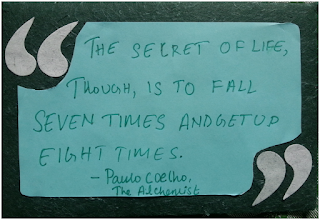 THE SECRET OF LIFE,
THOUGH, IS TO FALL
SEVEN TIMES ANDGETUP
EIGHT TIMES.
- Paulo Coelho,
The Alchemist